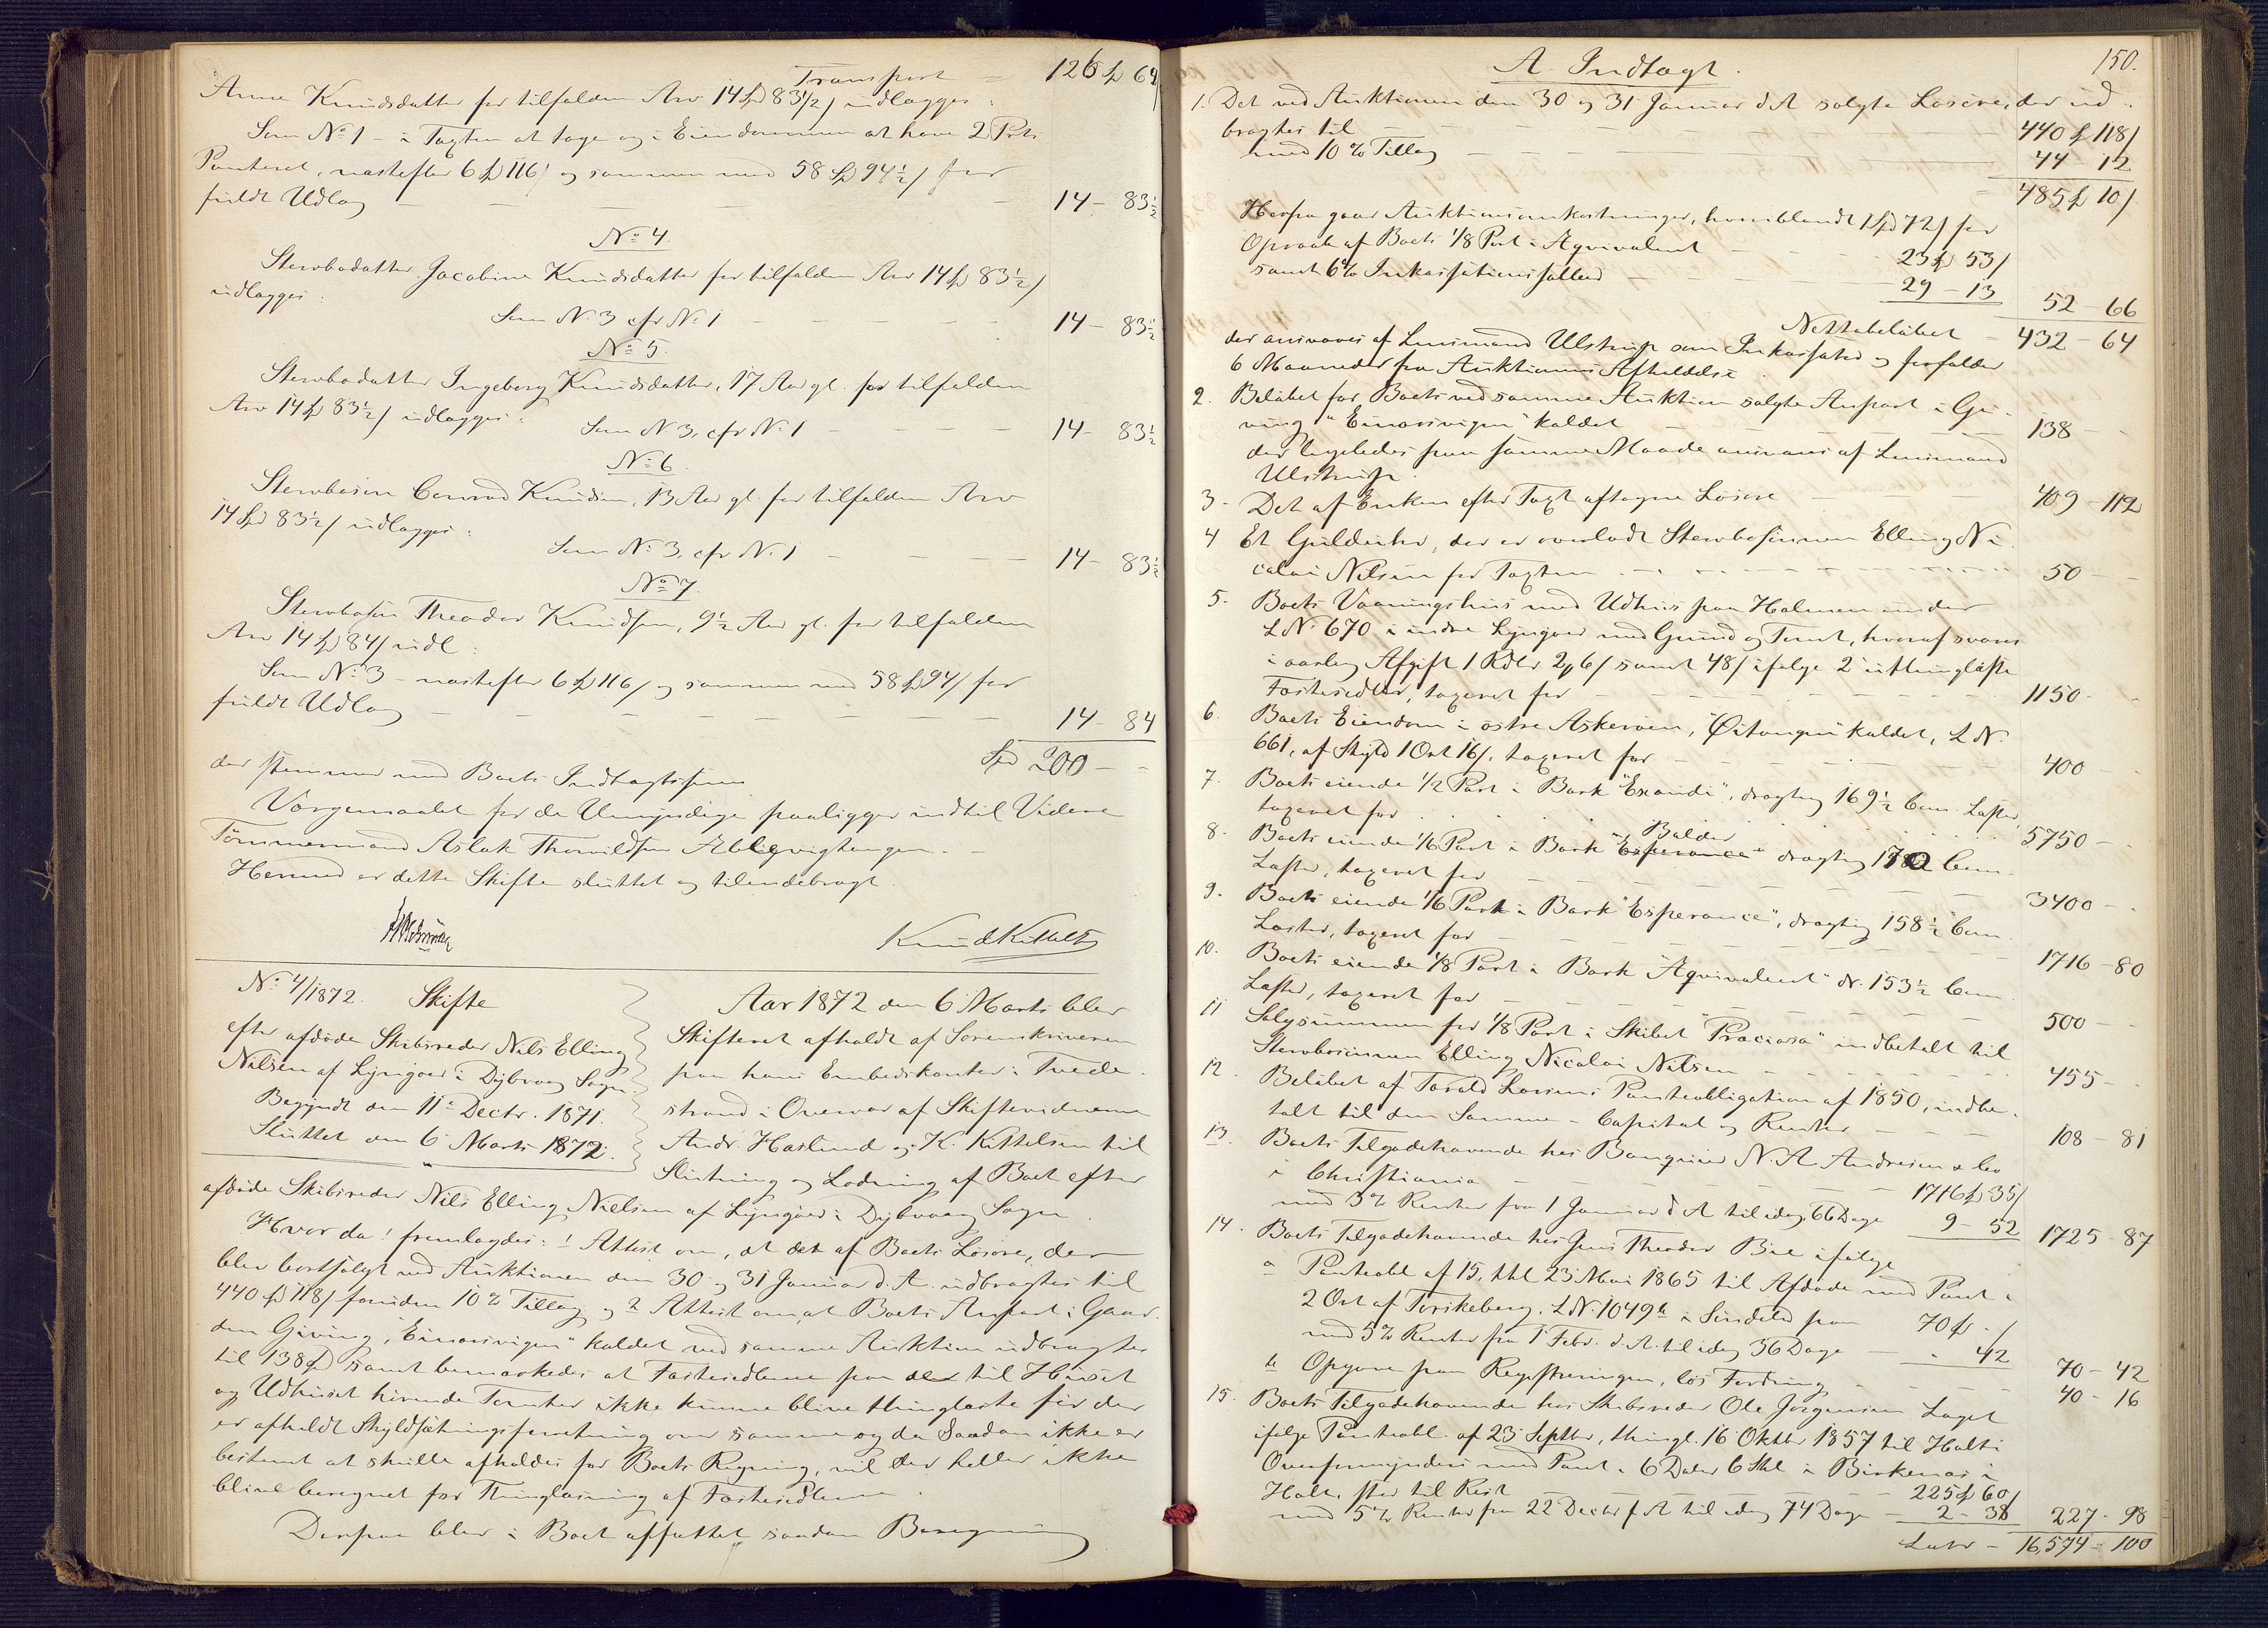 Transport = 126 Spd 64
Anne Knudsdatter for tilfalden Arv 14 Spd 83 1/2 / udlægges:
Som No 1 - i Taxten at tage og i Eiendommen at have 2 Prts
Panteret, næstefter 6 Spd 116/ og sammen med 58 Spd 94 1/2 / for
fuldt Udlæg - - - - 14 - 83 1/2
No 4.
Stervbodatter Jacobine Knudsdatter for tilfalden Arv 14 Spd 83 1/2 /
udlægges:
Som No 3 cfr No 1 - - - 14 - 83 1/2
No 5.
Stervbodatter Ingeborg Knudsdatter, 17 Aar gl. for tilfalden
Arv 14 Spd 83 1/2 / udlægges:
Som No 3, cfr No 1 - - - 14 - 83 1/2
No 6.
Stervbosøn Conrad Knudsen, 13 Aar gl. for tilfalden Arv
14 Spd 83 1/2 / udlægges:
Som No 3, cfr No 1 - - - 14 - 83 1/2
No 7.
Stervbosøn Theodor Knudsen, 9 1/2 Aar gl. for tilfalden
Arv 14 Spd 84/ udl:
Som No 3 - næstefter 6 Spd 116/ og sammen med 58 Spd 94/ for
fuldt Udlæg - - - - 14 - 84
Spd 200 - -
der stemmer med Boets Indtægtssum.
Værgemaalet for de Umyndige paaligger indtil Videre
Tømmermand Aslak Thorvildsen
Hermed er dette Skifte sluttet og tilendebragt.
Knud Kittels
No 4/1872. Skifte
efter afdøde Skibsreder Nils Elling
Nilsen af Lyngøer i Dybvaag Sogn
Begyndt den 11te Decbr. 1871.
Sluttet den 6 Marts 1872.
Aar 1872 den 6 Marts blev
Skifteret afholdt af Sorenskriveren
paa hans Embedskontor i Tvede-
strand i Overvær af Skiftevidnerne
Andr. Haslund og K. Kittelsen til
Slutning og Lodning af Boet efter
afdøde Skibsreder Nils Elling Nielsen af Lyngøer i Dybvaag Sogn.
Hvor da! fremlagdes: 1 Attest om, at det af Boets Løsøre, der
blev bortsolgt ved Auktionen den 30 og 31 Januar d. A. udbragtes til
440 Spd 118/ foruden 10 % Tillæg og 2 Attest om, at Boets Anpart i Gaar-
den Giving, "Einarsvigen" kaldet ved samme Auktion udbragtes
til 138 Spd samt bemærkedes at Fæstesedlerne paa de til Huset
og Udhuset hørende Tomter ikke kunne blive thinglæste før der
er afholdt Skyldsætningsforretning over samme og da Saadan ikke er
bestemt at skulle afholdes for Boets Regning, vil der heller ikke
blive beregnet for Thinglæsning af Fæstesedlerne.
Derpaa blev i Boet affattet saadan Beregning
150.
A Indtægt.
1. Det ved Auktionen den 30 og 31 Januar d A solgte Løsøre, der ud-
bragtes til - - - 440 Spd 118/
med 10 % Tillæg - - - 44 - 12
485 Spd 10/
Herfra gaar Auktionsomkostninger, hvoriblandt 1 Spd 72/ for
Opraab af Boets 1/8 Part i Æqvivalent - - 23 Spd 53/
samt 6% Inkassationssallær - - 29 - 13 52 - 66
Nettobeløbet - 432 - 64
der ansvares af Lensmand Ulstrup som Inkassator og forfalder
6 Maaneder fra Auktionens Afholdelse.
2. Beløbet for Boets ved samme Auktion solgte Anpart i Gi-
ving "Einarsvigen" kaldet - - - 138 - -
der ligeledes paa samme Maade ansvares af Lensmand
Ulstrup.
3. Det af Enken efter Taxt aftagne Løsøre - - 409 - 112
4 Et Guldeuhr, der er overladt Stervbosønnen Elling Ni-
colai Nilsen for Taxten - - - 50 - -
5. Boets Vaaningshus med Udhus paa Holmen under
L No 670 i indre Lyngøer med Grund og Tomt, hvoraf svares
i aarlig Afgift 1 Rdlr 2 6/ samt 48/ ifølge 2 uthinglæste
Fæstesedler, taxeret for - - - 1150 - -
6. Boets Eiendom i østre Askerøen, "Øitangen" kaldet, L No
661, af Skyld 1 Ort 16/, taxeret for - - - 400 - -
7. Boets eiende 1/2 Part i Bark "Exaudi", drægtig 169 1/2 Com. Læster
taxeret for - - - 5750 - -
8. Boets eiende 1/6 Part i Bark "Balder" Esperance drægtig 170 Com.
Læster, taxeret for - - - 3400 - -
9. Boets eiende 1/6 Part i Bark "Esperance", drægtig 158 1/2 Com.
Læster, taxeret for - - - 1716 - 80
10. Boets eiende 1/8 Part i Bark "Æqvivalent" dr. 153 1/2 Com
Læster, taxeret for - - - 500 - -
11 Salgssummen for 1/8 Part i Skibet "Praciosa" indbetalt til
Stervbosønnen Elling Nicolai Nilsen - - - 455 - -
12. Beløbet af Torald Larsens Panteobligation af 1850, indbe-
talt til den Samme - Capital og Renter - - - 108 - 81
13. Boets Tilgodehavende hos Banquier N. A. Andresen & Co
i Christiania - - - 1716 Spd 35/
med 3 % Renter fra 1 Januar d A til idag, 66 Dage 9 - 52 1725 - 87
14. Boets Tilgodehavende hos Jens Theodor Bie ifølge
a Panteobl af 15, thl 23 Mai 1865 til Afdøde med Pant i
2 Ort af Torskeberg, L No 1049 b i Søndeled paa 70 Spd - /
med 5 % Renter fra 1 Febr. d. A. til idag 36 Dage - 42 70 - 42
b Opgave paa Registreringen, løs Fordring - - 40 - 16
15. Boets Tilgodehavende hos Skibsreder Ole Jørgensen Laget
ifølge Panteobl. af 23 Septbr, thingl. 16 Oktbr 1857 til Holts
Overformynderi med Pant i 6 Daler 6 Skl i Birkenæs i
Holt, stor til Rest - - - 225 Spd 60/
med 5 % Renter fra 22 Decbr f A til idag 74 Dage - 2 - 38 227 - 98
Latr - 16,574 - 100